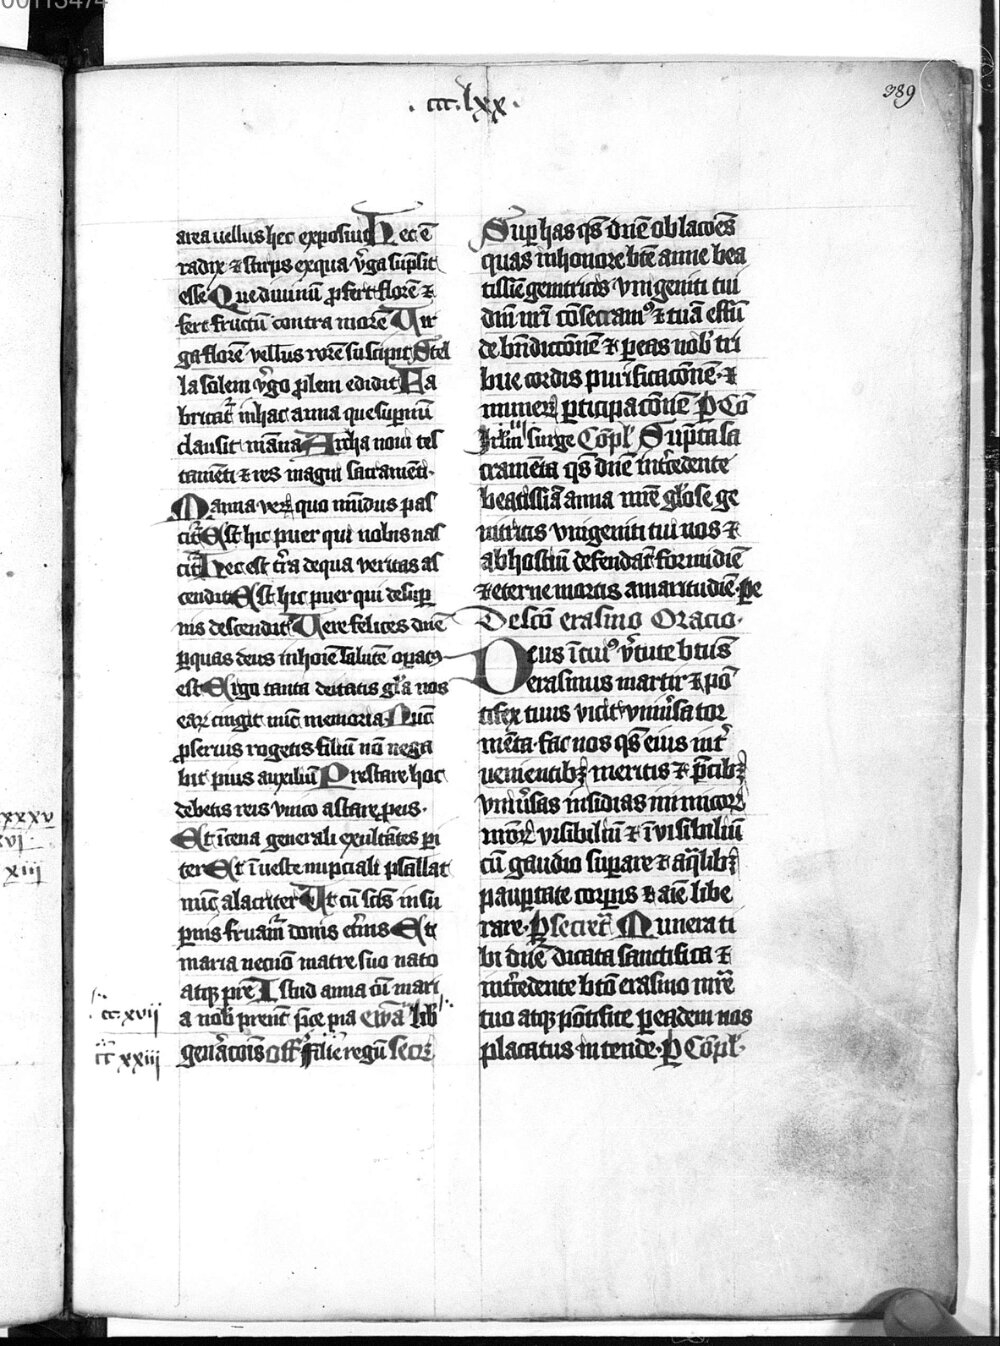 00113474
·ccc·lxx·
389
area uellus hec exposuit Hec ē
radix ⁊ stirps ex qua v̓ga sūpsit
esse Que diuinū ꝓfert florē ⁊
fert fructū contra morē Vir
ga florē vellus rorē suscipit Stel
la solem v̓go ꝓlem edidit Fa
bricat᷑ in hac anna que supernū
clausit manna Archa noui tes
tamēti ⁊ res magni sacramēti·
Manna veꝝ quo mūdus pas
cit᷑ Est hic puer qui nobis nas
cit᷑ Hec est t̓ra de qua veritas as
cendit Est hic puer qui desup̱
nis descendit Uere felices dn̄e
ꝑ quas deus in hoīe salutē oꝑatꝰ
est Ergo tanta deitatis gl̓a nos
eaꝝ cingit nūc memoria Nūc
ꝓ seruis rogetis filiū nō nega
bit pius auxiliū Prestare hoc
debetis reis vnico astare ꝑ eis·
Et ī cena generali exultātes pi
ter Et ī ueste nupciali psallat
nūc alacriter Ut cū scīs in su
ꝑnis fruam᷑ donis et̓nis Est
maria necnō matre suo nato
atqꝫ pr̄e Istud anna oī mari
a nob̓ preut̄ sīce pia Ewā lib̓
gen̓atōis off̄ Filie regū Secr̄
cc·xvii
cc xxiii
xxxv
xvi
xiii
Sup̱ has qs̄ dn̄e oblacōes
quas in honore btē anne bea
tissiē genitricis vnigeniti tui
dn̄i nr̄i cōsecramꝰ ⁊ tuā effū
de bn̄dictionē ⁊ ꝑ eas nob̓ tri
bue cordis purificacōnē·⁊
muneꝝ ꝑticipacōnē P Cō
Ihr̄lm surge Cōpl̓ Sūpta sa
cramēta qs̄ dn̄e int̓cedente
beatissīa anna mr̄e gl̓ose ge
nitricis vnigeniti tui nos ⁊
ab hostiū defendat᷑ formidīe
⁊ eterne mortis amaritudīe·ꝑ e
De scō erasmo Oracio·
Deus ī cuiꝰ v̓tute btūs
erasmus martir ⁊ pō
tifex tuus vicit vniu̓sa tor
mēta·fac nos qs̄ eius int̓
uenientibꝫ meritis ⁊ p̄cibꝫ
vniu̓sas insidias inimicoꝝ
nr̄oꝝ visibiliū ⁊ īvisibiliū
cū gaudio suꝑare ⁊ a q̄libꝫ
pauꝑtate corꝑis ⁊ aīe libe
rare·ꝑ Secret᷑ Munera ti
bi dn̄e dicata sanctifica ⁊
int̓cedente btō erasmo mr̄e
tuo atqꝫ pōtifice ꝑ eadem nos
placatus intende·ꝑ Cōpl̓·